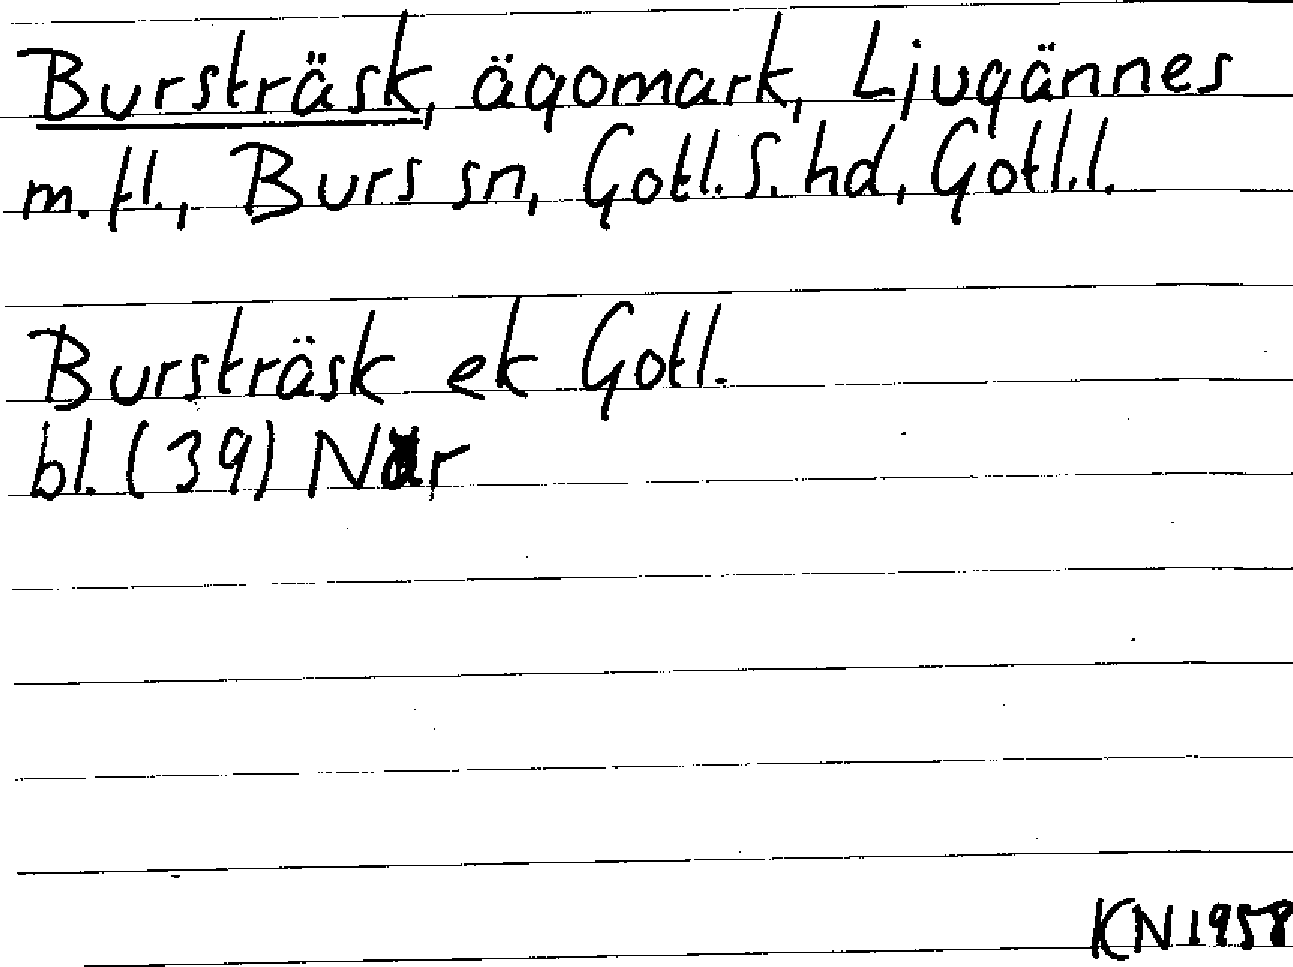 Bursträsk, ägomark, Ljugännes
m.fl., Burs sn, Gotl. S. hd, Gotl. l.
Bursträsk ek Gotl.
bl. (39) När
KN 1958